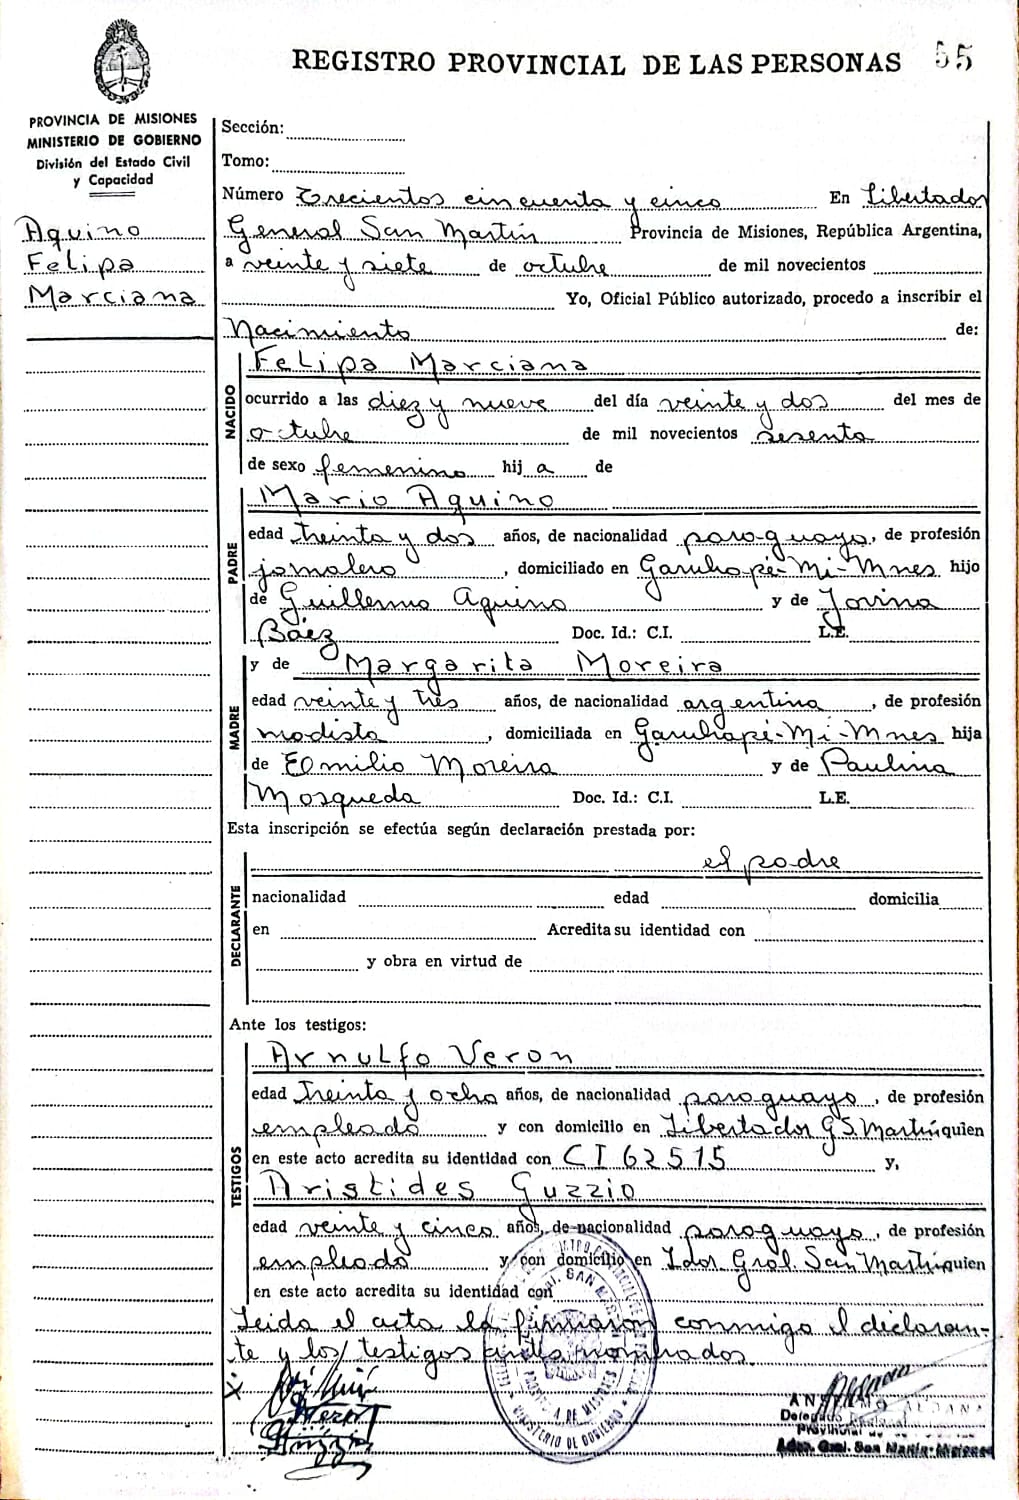 REGISTRO PROVINCIAL DE LAS PERSONAS 55
PROVINCIA DE MISIONES
MINISTERIO DE GOBIERNO
División del Estado Civil
y Capacidad
Aquino
Felipa
Marciana
Sección:
Tomo:
Número Trecientos cincuenta y cinco En Libertador
General San Martín Provincia de Misiones, República Argentina,
a veinte y siete de octubre de mil novecientos
Yo, Oficial Público autorizado, procedo a inscribir el
Nacimiento de:
NACIDO
Felipa Marciana
ocurrido a las diez y nueve del día veinte y dos del mes de
octubre de mil novecientos sesenta
de sexo femenino hij a de
PADRE
Mario Aquino
edad treinta y dos años, de nacionalidad paraguaya, de profesión
jornalero, domiciliado en Garuhapé-Mi-Mnes hijo
de Guillermo Aquino y de Jovina
Báez Doc. Id.: C.I. L.E.
MADRE
y de Margarita Moreira
edad veinte y tres años, de nacionalidad argentina, de profesión
modista, domiciliada en Garuhapé-Mi-Mnes hija
de Emilio Moreira y de Paulina
Mosqueda Doc. Id.: C.I. L.E.
Esta inscripción se efectúa según declaración prestada por:
DECLARANTE
el padre
nacionalidad edad domicilia
en Acredita su identidad con
y obra en virtud de
Ante los testigos:
TESTIGOS
Arnulfo Veron
edad treinta y ocho años, de nacionalidad paraguayo, de profesión
empleado y con domicilio en Libertador G S. Martín quien
en este acto acredita su identidad con C I 62515 y,
Aristides Guzzio
edad veinte y cinco años, de nacionalidad paraguayo, de profesión
empleado y con domicilio en Ldor. Gral. San Martín quien
en este acto acredita su identidad con
Leida el acta la firmaron conmigo el declaran-
te y los testigos antes nombrados.
MINISTERIO DE GOBIERNO
Delegado
Gral. San Martín-Misiones